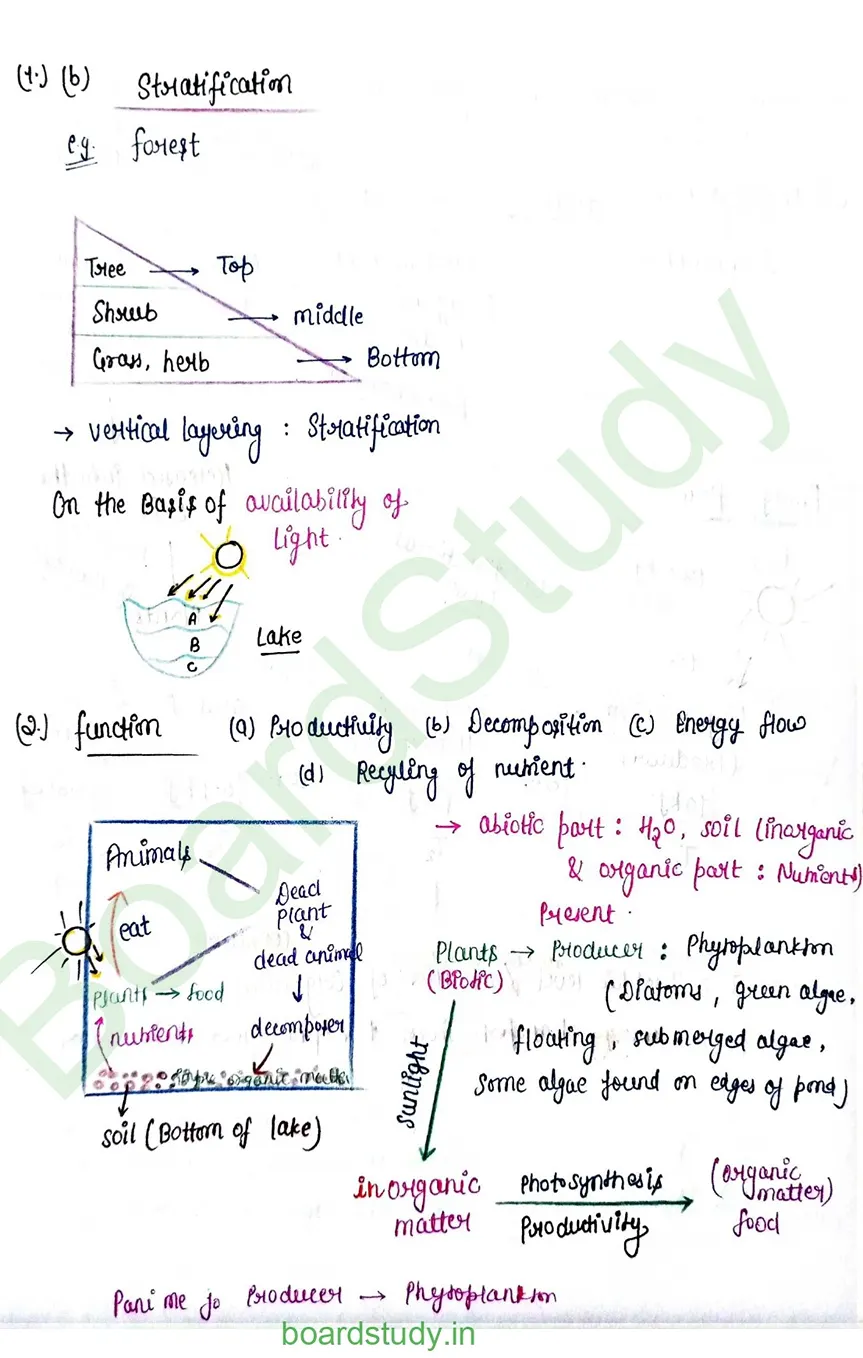 (1.) (b) Stratification
e.g. forest
Tree → Top
Shrub → middle
Grass, herb → Bottom
→ vertical layering : Stratification
On the Basis of availability of
Light.
A
B
C
Lake
(2.) function (a) Productivity (b) Decomposition (c) Energy flow
(d) Recyling of nutrient.
Animals
Dead
plant
&
dead animal
eat
plants → food
decomposer
nutrients
organic matter
soil (Bottom of lake)
→ abiotic part : H₂O, soil (inorganic
& organic part : Nutrients)
Present.
Plants → Producer : Phytoplankton
(Biotic)
(Diatoms, green algae,
floating, submerged algae,
Some algae found on edges of pond)
Sunlight
inorganic
matter
Photosynthesis
Productivity
(organic
matter)
food
Pani me jo Producer → Phytoplankton
BoardStudy
boardstudy.in